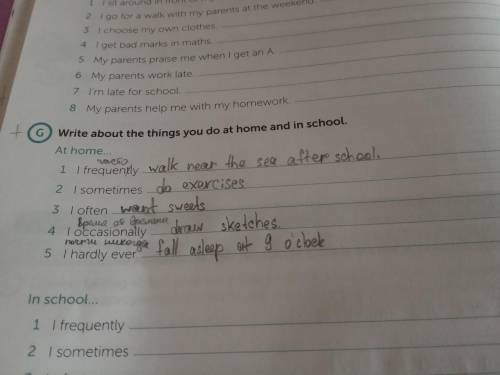 1 I sit around in front of
2 I go for a walk with my parents at the weekend.
3 I choose my own clothes.
4 I get bad marks in maths.
5 My parents praise me when I get an A.
6 My parents work late.
7 I'm late for school.
8 My parents help me with my homework.
+ G Write about the things you do at home and in school.
At home...
часто
1 I frequently walk near the sea after school.
2 I sometimes do exercises
3 I often want sweets
Время от времени
4 I occasionally draw sketches.
почти никогда
5 I hardly ever fall asleep at 9 o'clock
In school...
1 I frequently
2 I sometimes